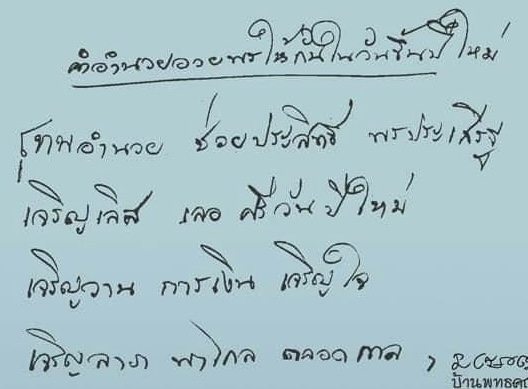 คำอำนวยอวยพรให้กันในวันขึ้นปีใหม่
เทพอำนวย ช่วยประสิทธิ์ พรประเสริฐ
เจริญเลิศ เลอ ศรี วัน ปีใหม่
เจริญงาน การเงิน เจริญใจ
เจริญลาภ ตลอดกาล
บ้านพุทธ